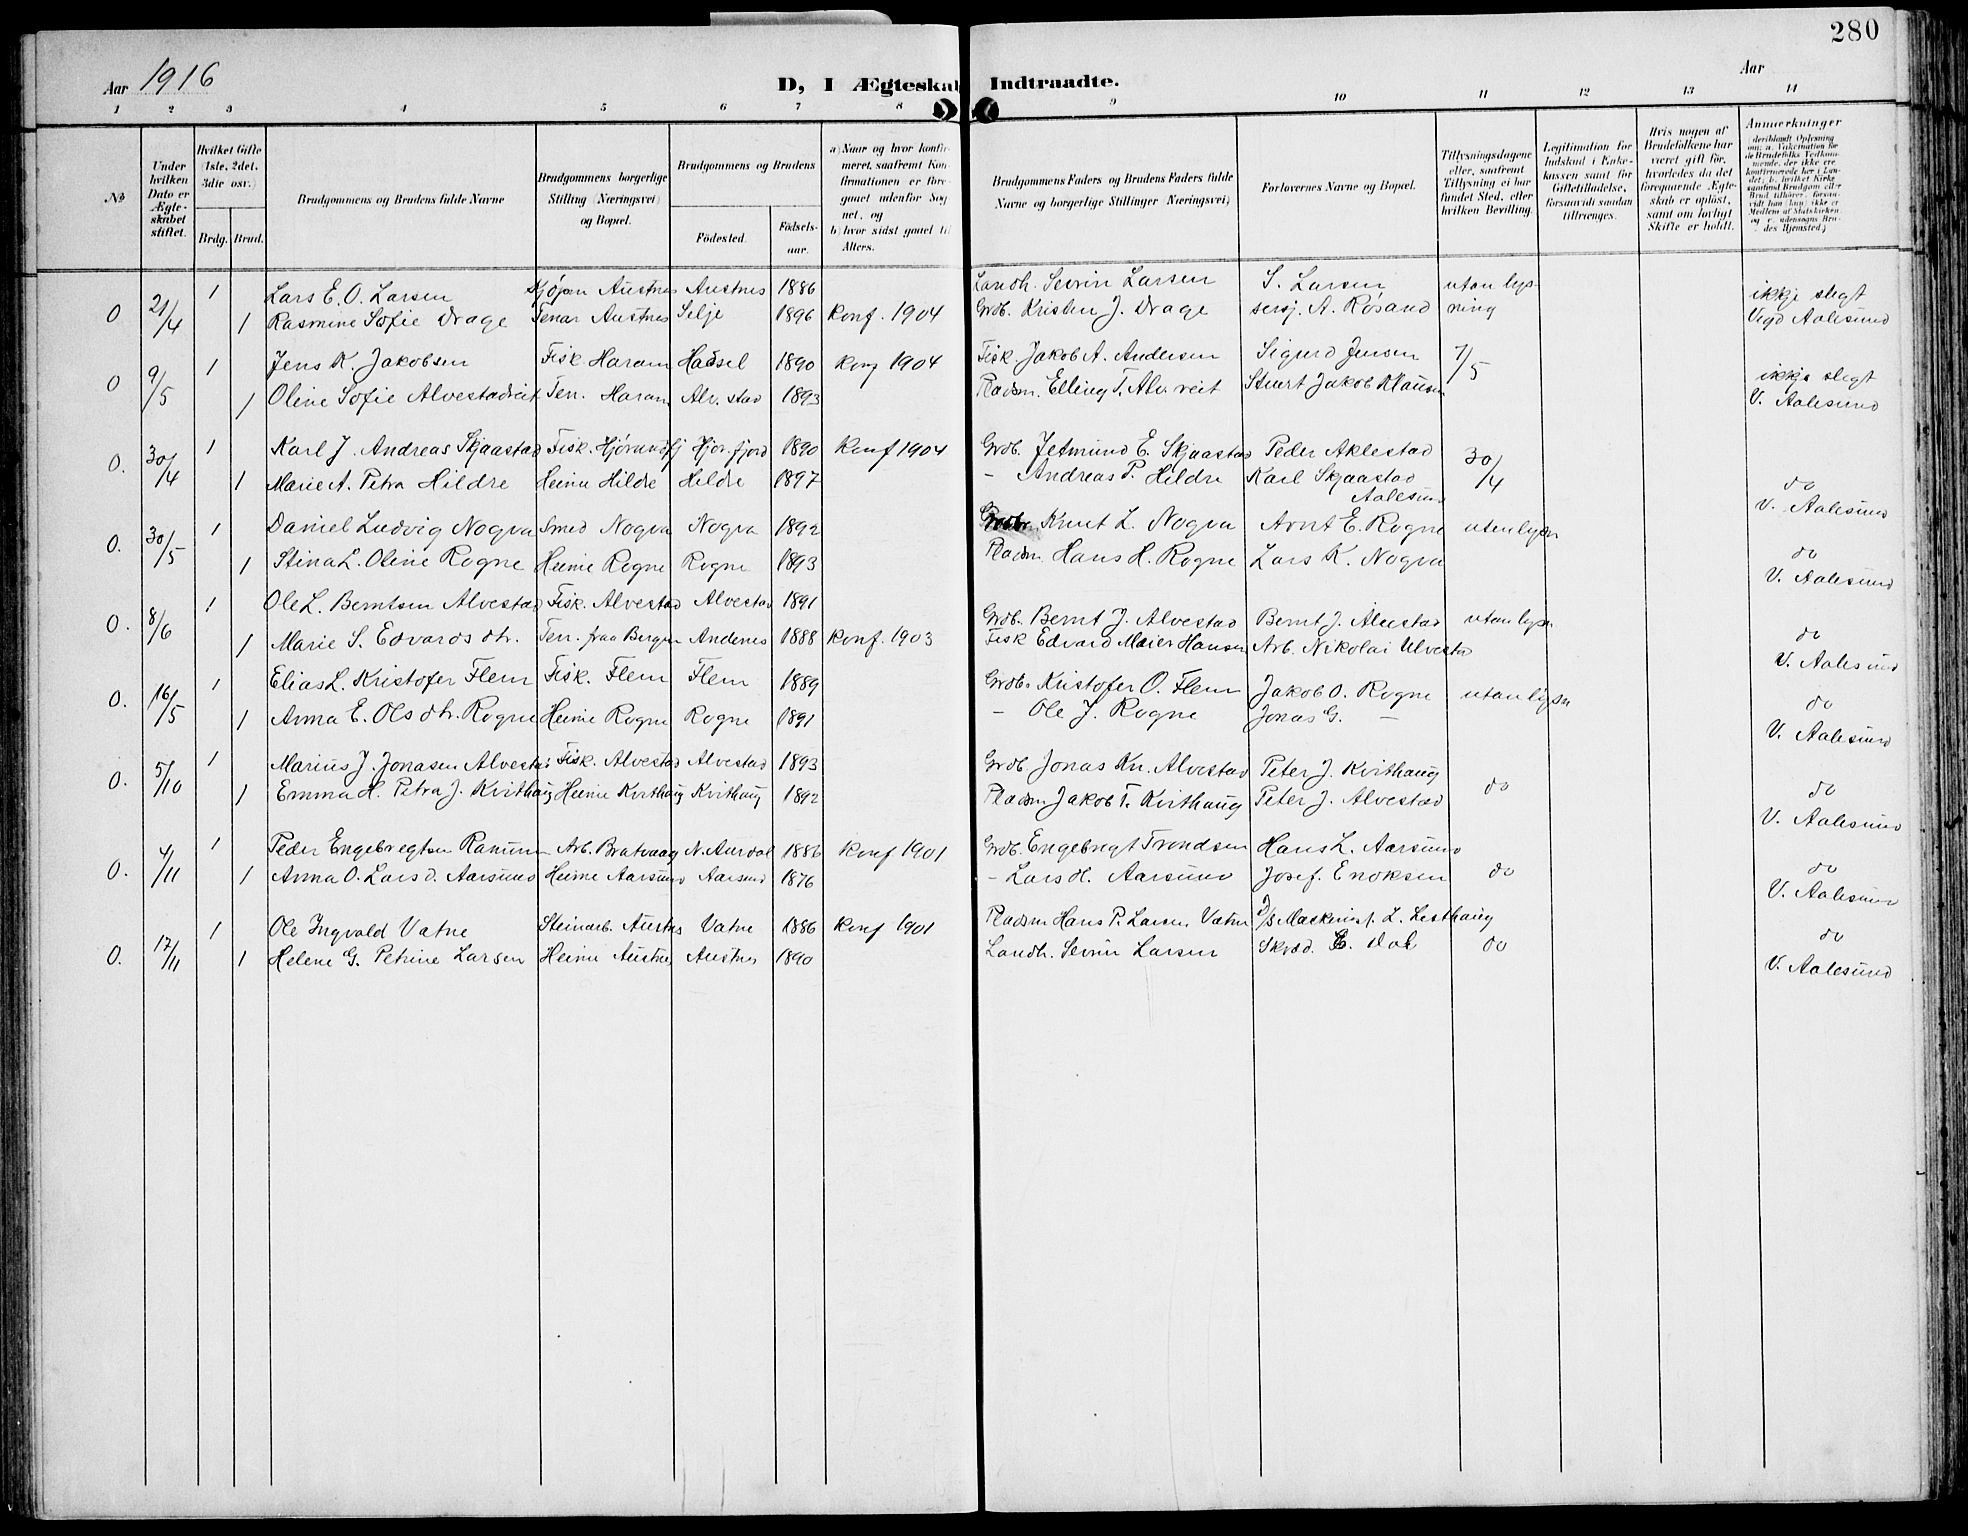 280
Aar 1916
D, I Ægteskab Indtraadte.
Aar
1 2 3 4 5 6 7 8 9 10 11 12 13 14
№
Under hvilken Dato er Ægteskabet stiftet.
Hvilket Gifte (1ste, 2det, 3die osv.)
Brdg. Brud.
Brudgommens og Brudens fulde Navne
Brudgommens borgerlige Stilling (Næringsvei) og Bopæl.
Brudgommens og Brudens
Födested.
Fødsels-aar.
a) Naar og hvor konfirmeret, saafremt Konfirmationen er foregaaet udenfor Sognet, og
b) hvor sidst gaaet til Alters.
Brudgommens Faders og Brudens Faders fulde Navne og borgerlige Stillinger Næringsvei)
Forlovernes Navne og Bopæl.
Tillysningsdagene eller, saafremt Tillysning ei har fundet Sted, efter hvilken Bevilling.
Legitimation for Indskud i Enkekassen samt for Giftetilladelse, forsaavidt saadan tiltrænges.
Hvis nogen af Brudefolkene har været gift før, hvorledes da det foregaaende Ægteskab er opløst, samt om lovligt Skifte er holdt.
Anmærkninger
0 21/4 1 Lars E. O. Larsen Austnes Austnes 1886 Landh. Sevrin Larsen S. Larsen utan lys- ikkje slegt
1 Rasmine Sofie Drage Tenar Austnes Selje 1896 Konf. 1904 Grdb. Kristen J. Drage sersj. A. Røsand ning Vigd Aalesund
0 9/5 1 Jens K. Jakobsen Fisk. Haram Hadsel 1890 Konf 1904 Fisk. Jakob A. Andersen Sigurd Jensen 7/5 ikkje slegt
1 Oline Sofie Alvestadveit Ten. Haram Alv.stad 1893 Pladsm. Elling T. Alv.veit Stuert Jakob Klausen V. Aalesund
0. 30/4 1 Karl J. Andreas Skjaastad Fisk. Hjørundfj Hjør.fjord 1890 Konf 1904 Grdb. Jetmund E. Skjaastad Peder Aklestad 30/4 do
1 Marie A. Petra Hildre Heime Hildre Hildre 1897 - Andreas P. Hildre Karl Skjaastad Aalesund V. Aalesund
0. 30/5 1 Daniel Ludvig Nogva Smed Nogva Nogva 1892 Knut L. Nogva Arnt E. Rogne utenlysn do
1 Stina L. Oline Rogne Heime Rogne Rogne 1893 Pladsm Hans H. Rogne Lars K. Nogva V. Aalesund
0. 8/6 1 Ole L. Berntsen Alvestad Fisk. Alvestad Alvestad 1891 Grdb. Bernt J. Alvestad Bernt J. Alvestad utan lysn do
1 Marie S. Edvards dtr. Ten. fraa Bergen Andenes 1888 Konf. 1903 Fisk Edvard Meier Hansen Arb. Nikolai Ulvestad V. Aalesund
0. 16/5 1 Elias L. Kristofer Flem Fisk. Flem Flem 1889 Grdb. Kristofer O. Flem Jakob O. Rogne utan lysn do
1 Anna E. Ols dtr. Rogne Heime Rogne Rogne 1891 - Ole J. Rogne Jonas G. - V. Aalesund
0. 5/10 1 Marius J. Jonasen Alvestad Fisk. Alvestad Alvestad 1893 Grdb. Jonas Kn. Alvestad Peter J. Kvithaug do do
1 Emma H. Petra J. Kvithaug Heime Kvithaug Kvithaug 1892 Pladsm Jakob T. Kvithaug Peter J. Alvestad V. Aalesund
0. 4/11 1 Peder Engebregtsen Ranum Arb. Bratvaag N. Aurdal 1886 Konf 1901 Grdb. Engebregt Trondsen Hans L. Aarsund do
1 Anna O. Lars d. Aarsund Heime Aarsund Aarsund 1876 - Lars H. Aarsund Josef. Enoksen do V. Aalesund
0. 17/11 1 Ole Ingvald Vatne Steinarb. Austnes Vatne 1886 Konf 1901 Pladsm Hans P. Larsen Vatne D/S Maskinist L. Lesthaug do
1 Helene G. Petrine Larsen Heime Austnes Austnes 1890 Landh. Sevrin Larsen Skræd. E. Dal do V. Aalesund